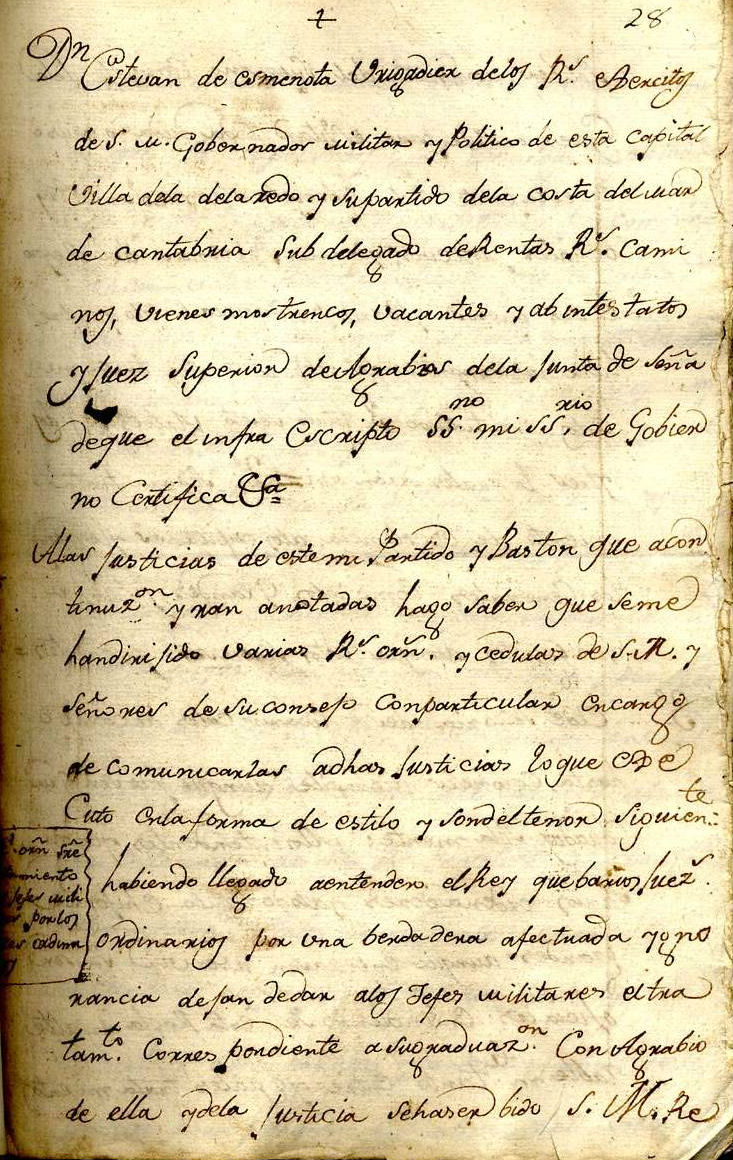 + 28
Dn Estevan de esmenota Vrigadier delos Rs. exercitos
de S. M. Gobernador militar y Politico de esta capital
Villa dela delaredo y supartido dela costa delmar
de cantabria Sub delegado deRentas Rs. cami
nos, vienes mostrencos, vacantes y ab intestatos
y Juez Superior deAgrabios dela Junta de Seña
deque el infra Escripto SSno. mi SSrio. de Gobier
no Certifica &a
Alas Justicias de este mi Partido y Baston que acon
tinuzon. yran anotadas hago saber que seme
handirijido varias Rs. orñ. y cedulas de S. M. y
señores de su consejo Conparticular encargo
de comunicarlas adhas Justicias loque exe
Cuto enla forma de estilo y sondeltenor siguiente
orñ Sre
miento
Jefes mili
por los
ordina
habiendo llegado aentender el Rey que barios Juezs.
ordinarios por una berdadera afectuada ygno
rancia dejan dedar alos Jefes militares eltra
tamto. Correspondiente asugraduazon. Con Agrabio
de ella ydela Justicia sehaser bido S. M. Re